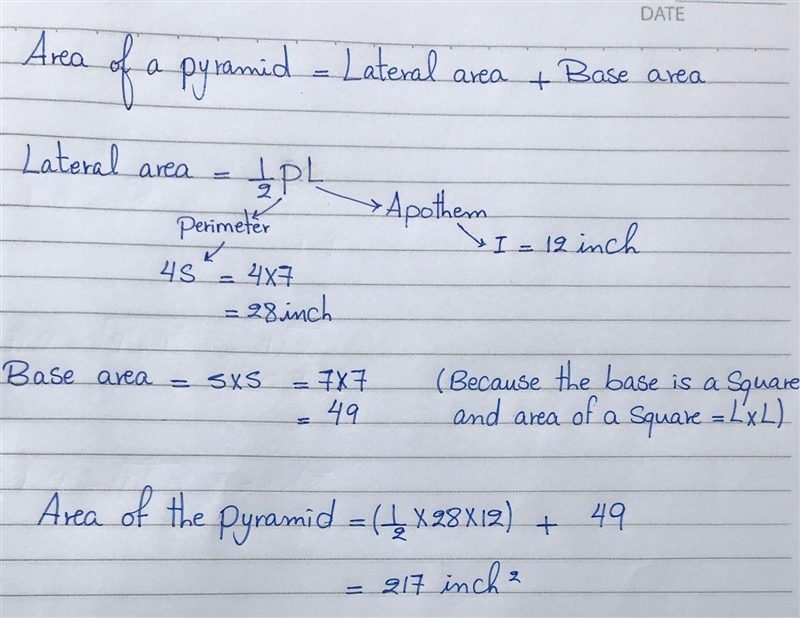 DATE
Area of a pyramid = Lateral area + Base area
Lateral area = 1/2 PL
Apothem
Perimeter
I = 12 inch
4S = 4×7
= 28 inch
Base area = s×s = 7×7 (Because the base is a square
= 49 and area of a square = L×L)
Area of the pyramid = (1/2 ×28×12) + 49
= 217 inch²